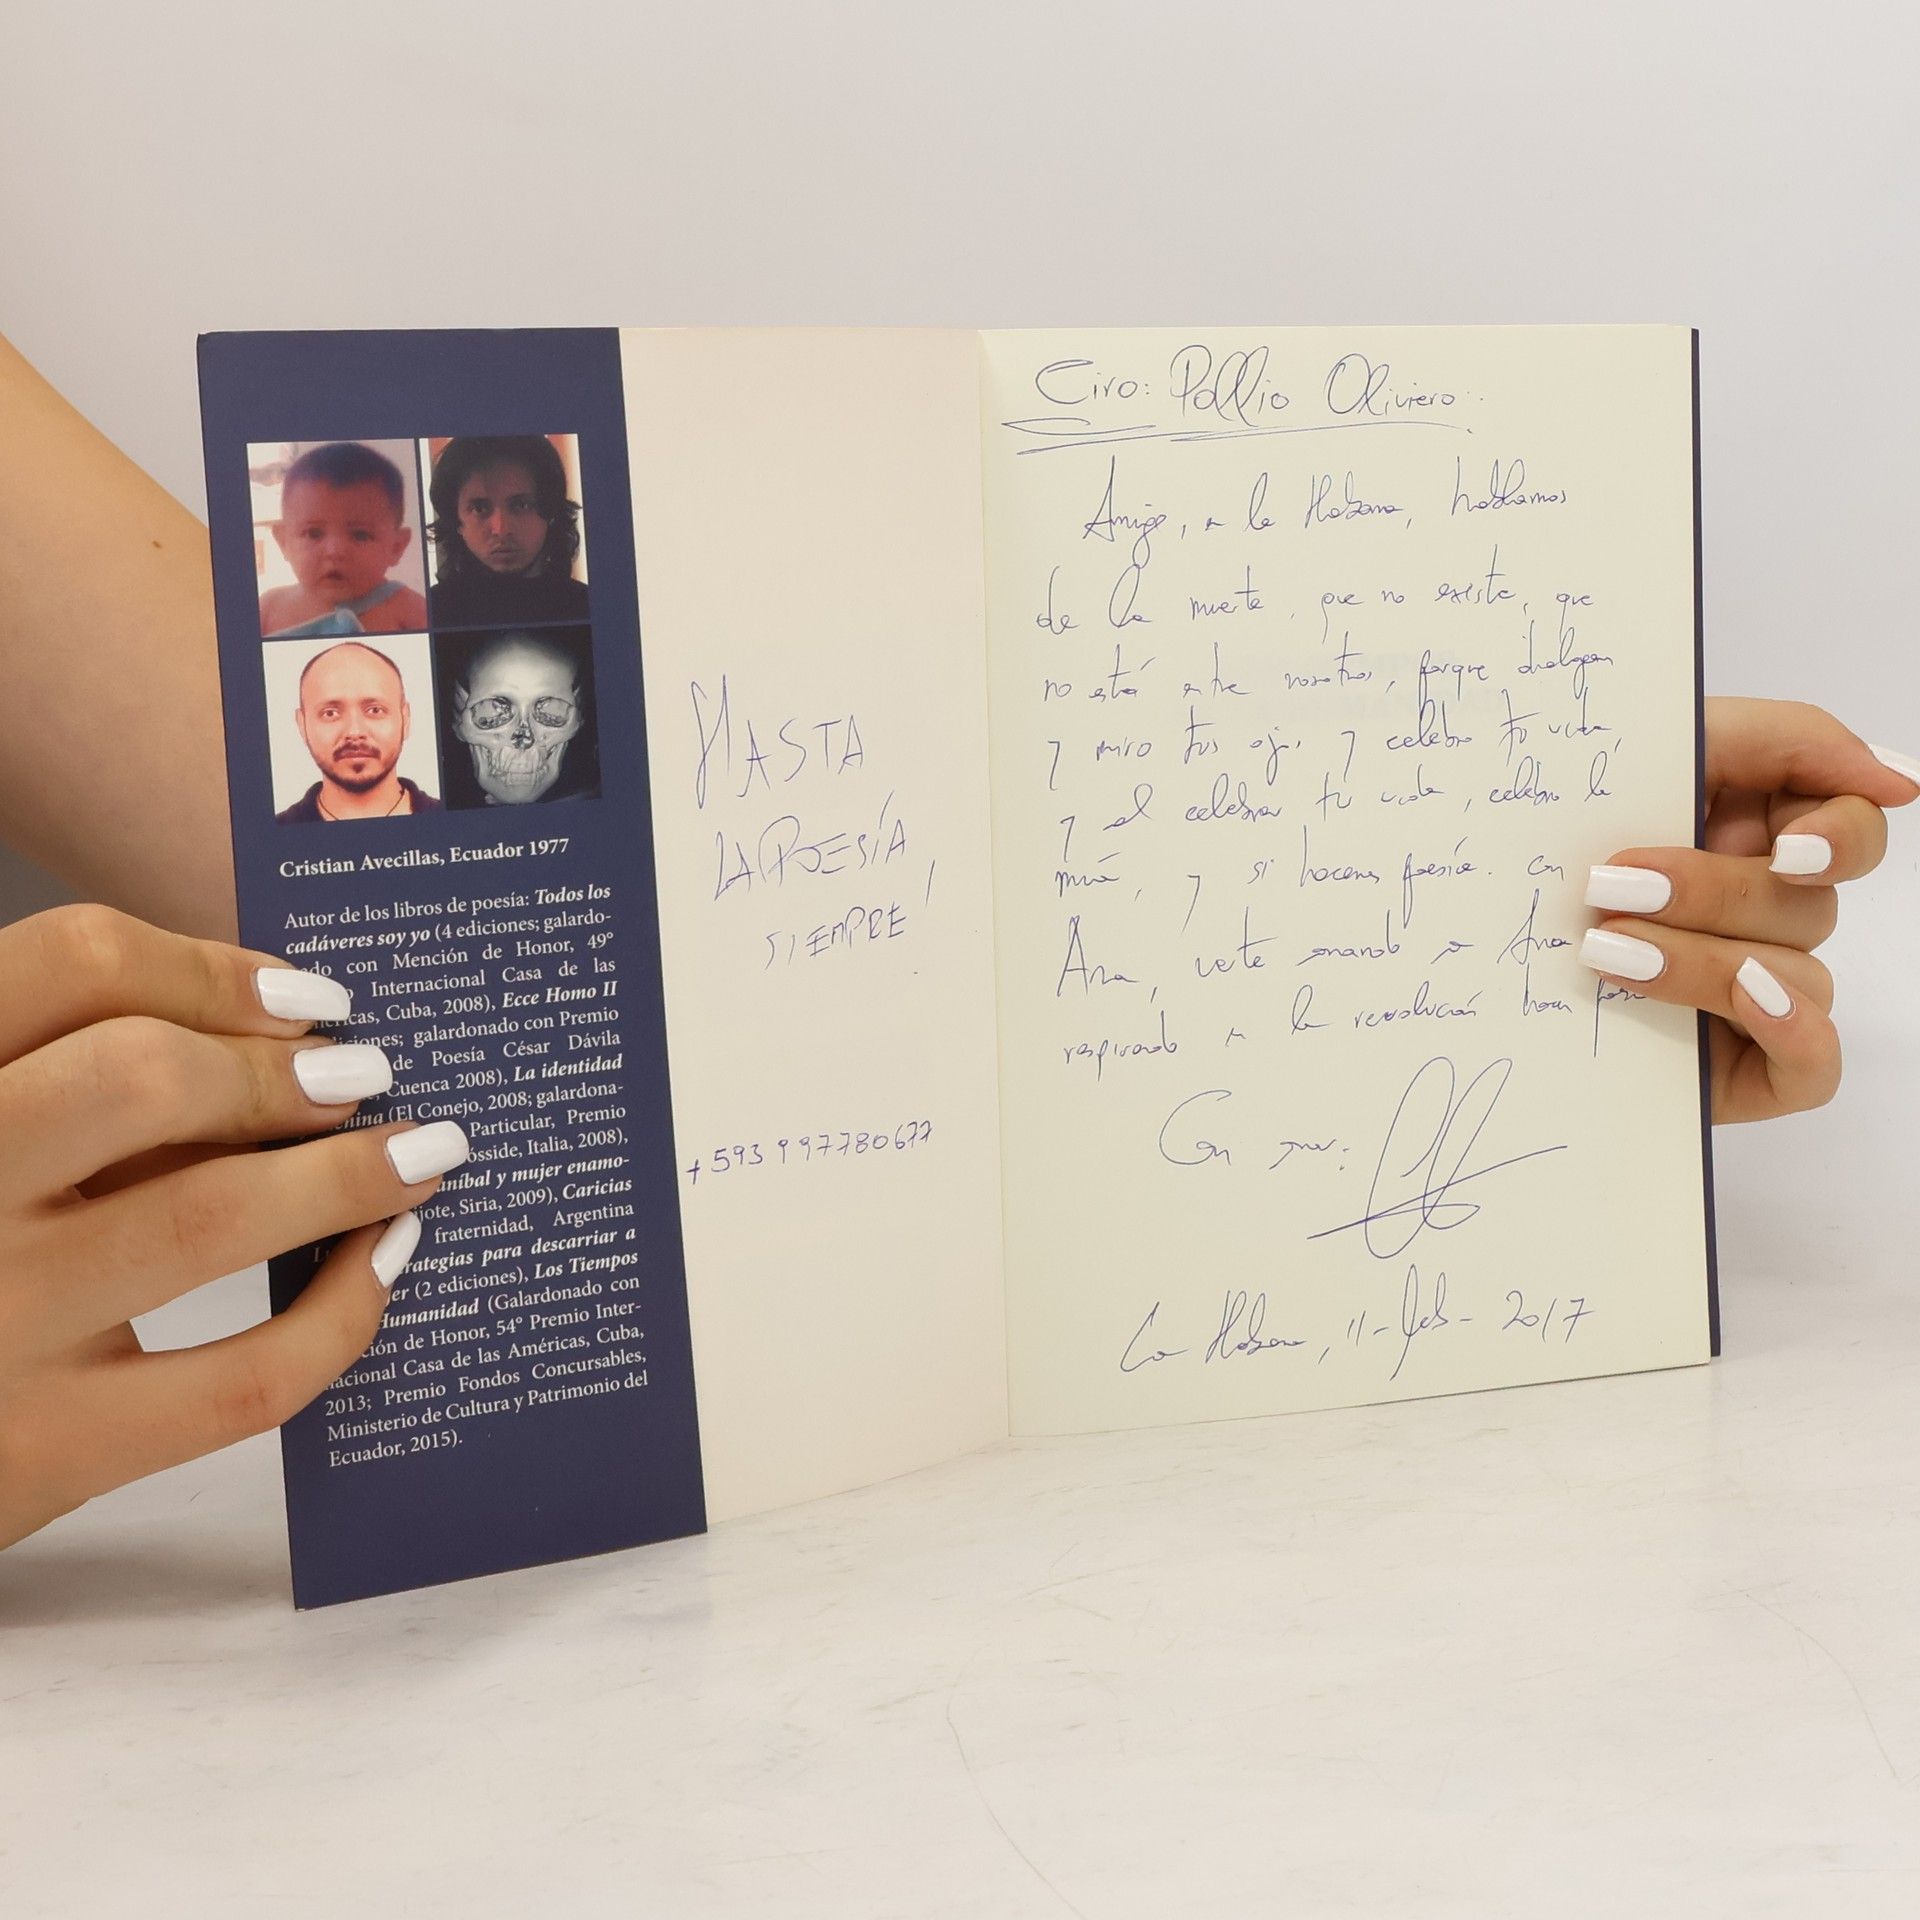 Cristian Avecillas, Ecuador 1977
Autor de los libros de poesía: Todos los
cadáveres soy yo (4 ediciones; galardo-
do con Mención de Honor, 49°
Internacional Casa de las
icas, Cuba, 2008), Ecce Homo II
iciones; galardonado con Premio
de Poesía César Dávila
Cuenca 2008), La identidad
nina (El Conejo, 2008; galardona-
Particular, Premio
ósside, Italia, 2008),
aníbal y mujer enamo-
ijote, Siria, 2009), Caricias
fraternidad, Argentina
rategias para descarriar a
er (2 ediciones), Los Tiempos
Humanidad (Galardonado con
ción de Honor, 54° Premio Inter-
nacional Casa de las Américas, Cuba,
2013; Premio Fondos Concursables,
Ministerio de Cultura y Patrimonio del
Ecuador, 2015).
HASTA
LA POESÍA
SIEMPRE!
+593 997780677
Ciro: Pollio Oliviero:
Amigo, en la Habana, hablamos
de la muerte, que no existe, que
no está entre nosotros, porque
y miro tus ojos y celebro tu vida,
y al celebrar tu vida, celebro la
mía, y si hacemos poesía. con
Ana, verte amando a Ana
respirando en la revolución
Con amor:
La Habana, 11-feb-2017